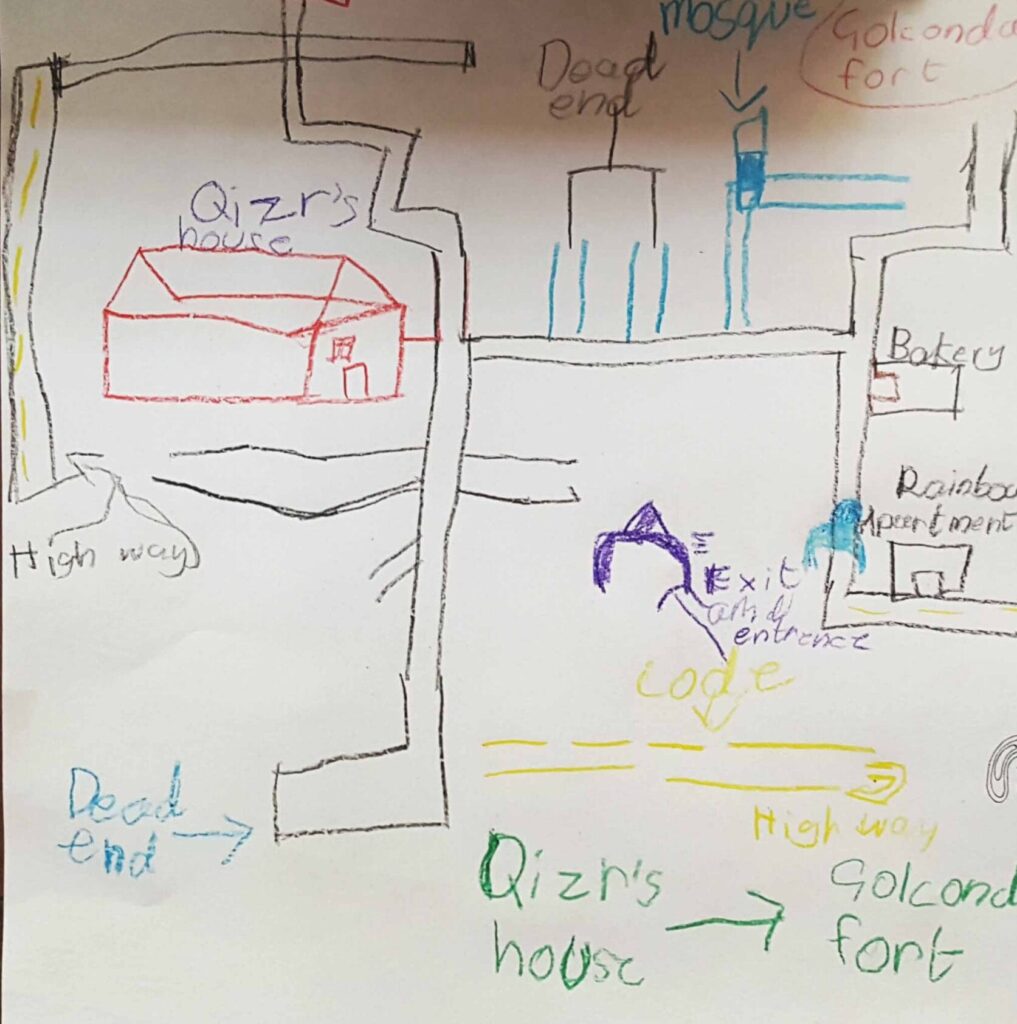 mosque
Golconda
fort
Dead
end
Qizr's
house
Bakery
Rainbow
Apartment
High way
Exit
and
entrance
code
Dead
end
High way
Qizr's
house
Golcond
fort